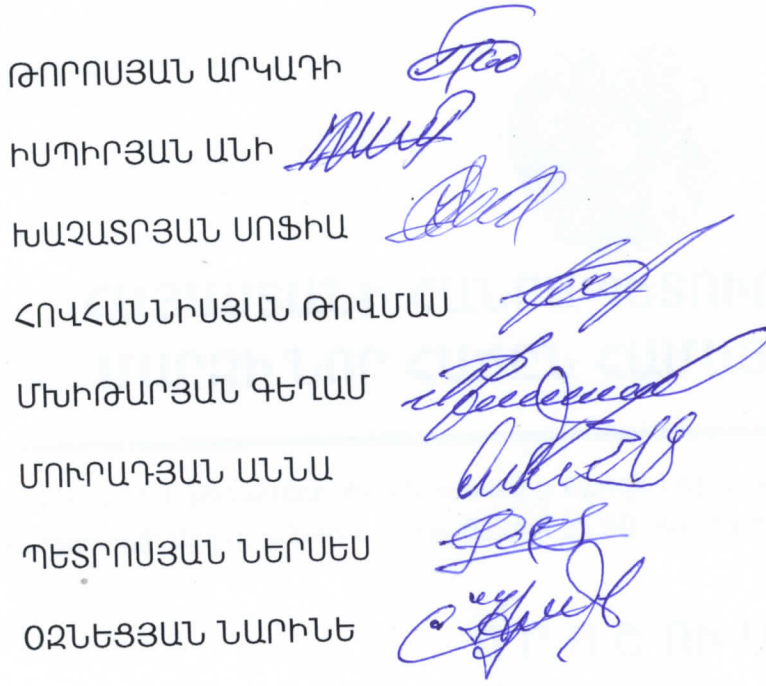 ԹՈՐՈՍՅԱՆ ԱՐԿԱԴԻ
ԻՍՊԻՐՅԱՆ ԱՆԻ
ԽԱՉԱՏՐՅԱՆ ՍՈՖԻԱ
ՀՈՎՀԱՆՆԻՍՅԱՆ ԹՈՎՄԱՍ
ՄԽԻԹԱՐՅԱՆ ԳԵՂԱՄ
ՄՈՒՐԱԴՅԱՆ ԱՆՆԱ
ՊԵՏՐՈՍՅԱՆ ՆԵՐՍԵՍ
ՕԶՆԵՑՅԱՆ ՆԱՐԻՆԵ